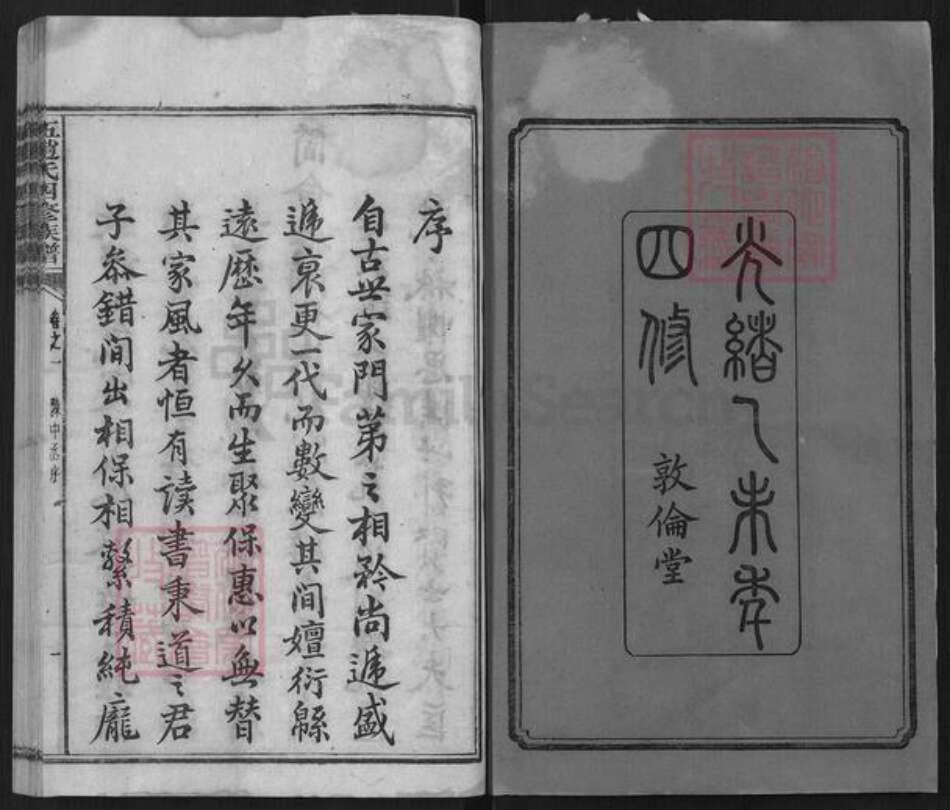 光緒乙未年
四修
敦倫堂
序
自古世家門第之相矜尚遞盛
遞衰更一代而數變其間嬗衍緜
遠歷年久而生聚保惠以無替
其家風者恒有读書秉道之君
子叅錯间出相保相繫積純龐
五趙氏四修族譜
卷之一
序
一